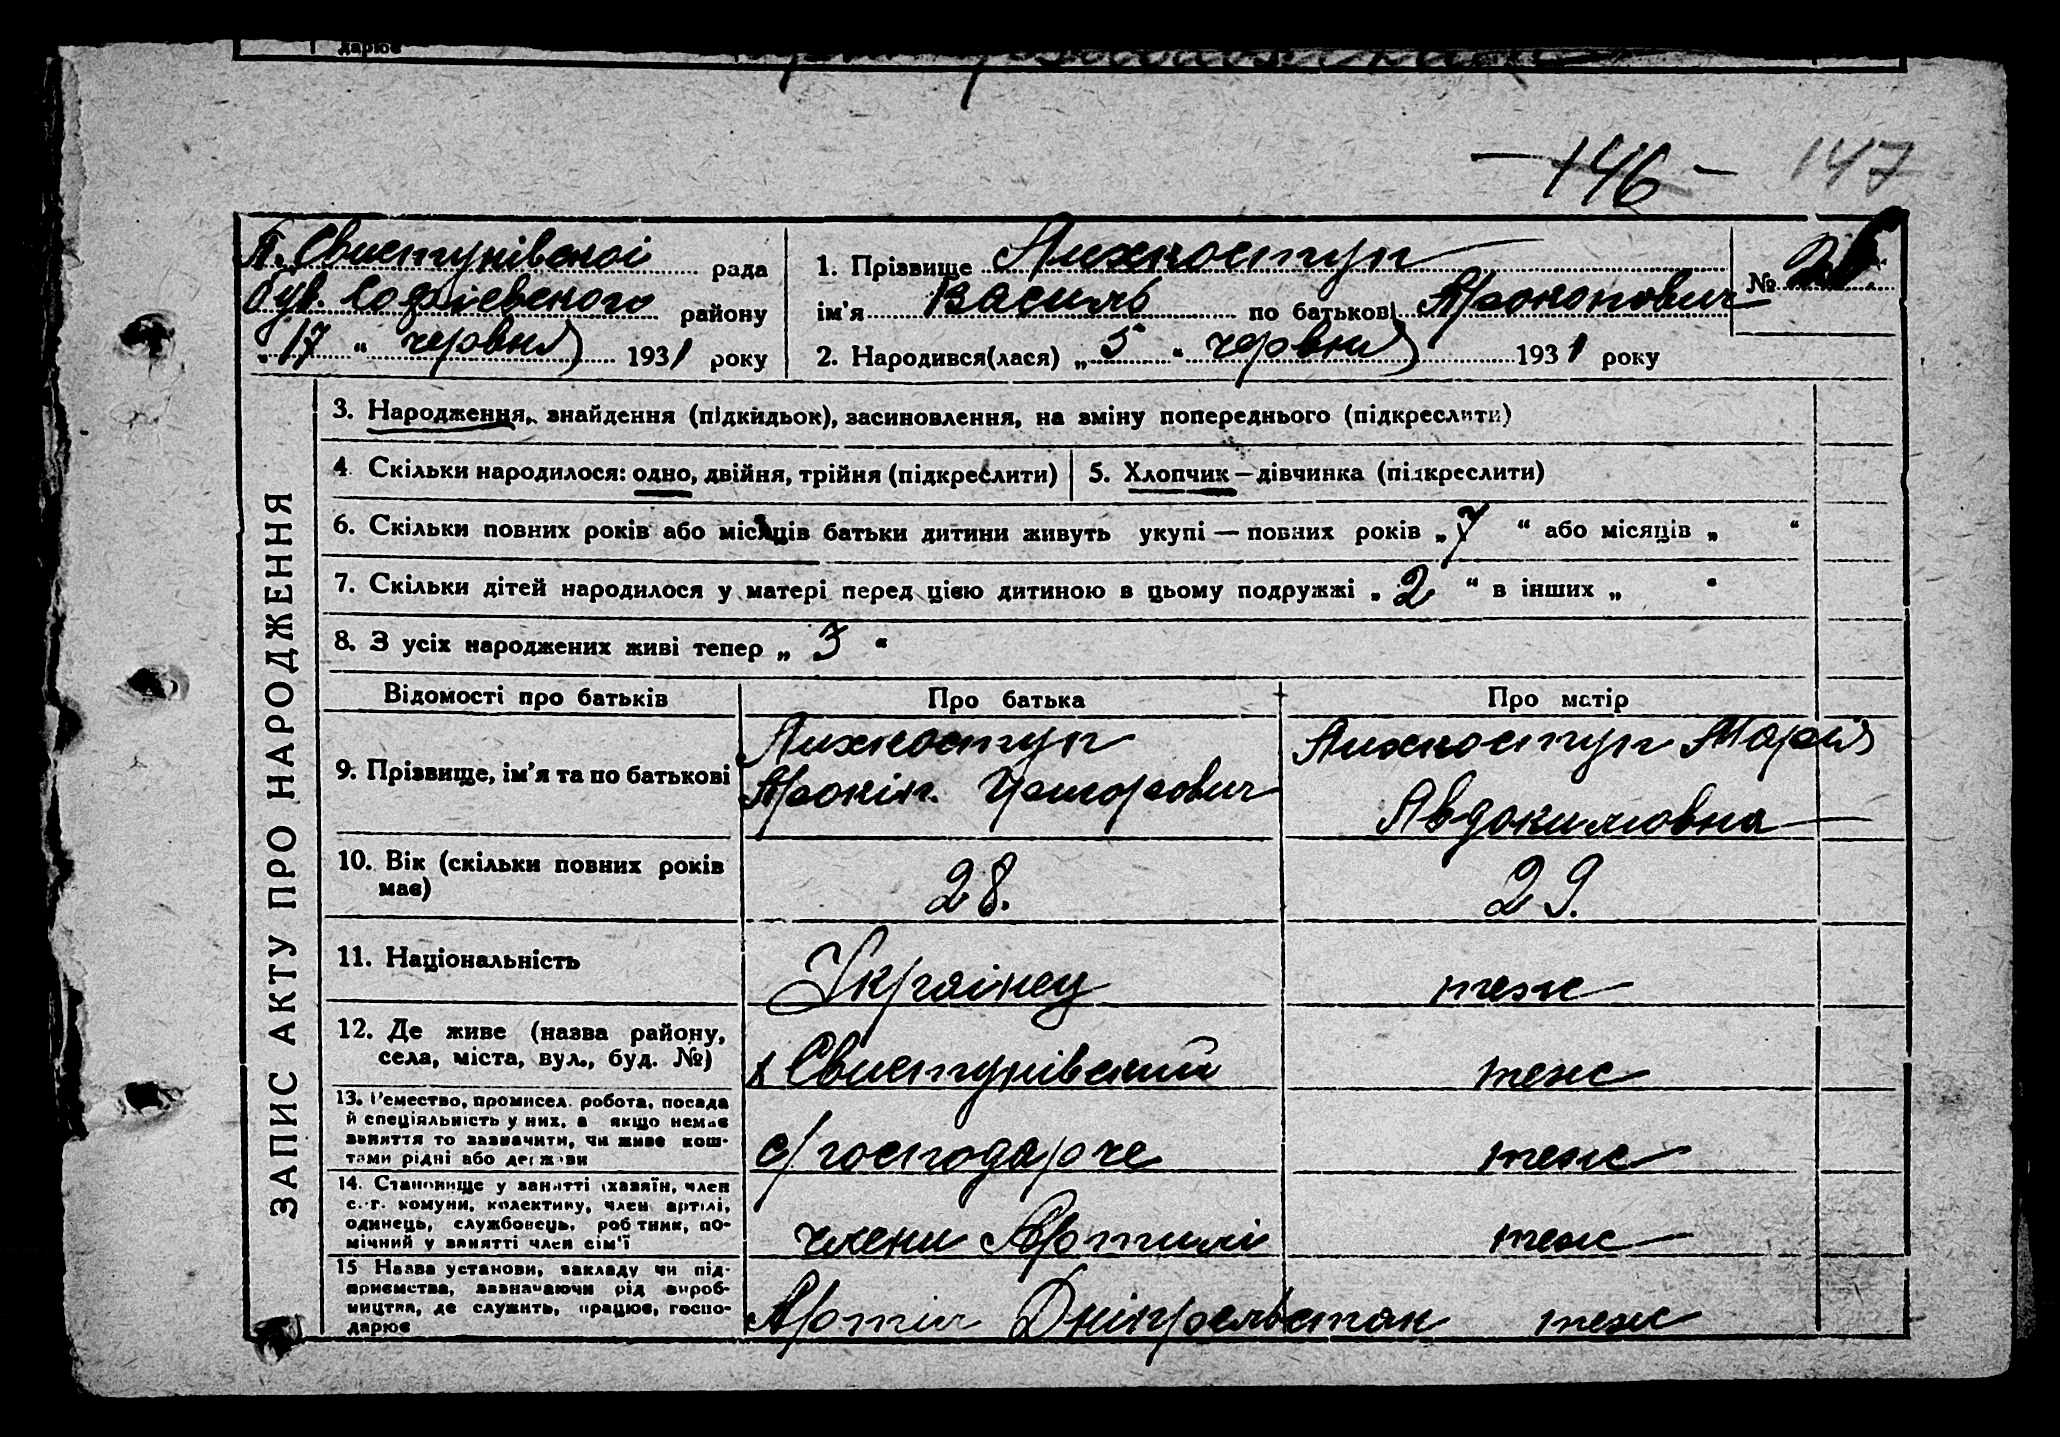 дарює
— 146 — 147
П. Свистунівскоі рада
був. Софіевского району
„ 17 “ червня 1931 року
1. Прізвище Лихкоступ
ім'я Василь по батькові
№
2. Народився(лася) „ 5 “ червня 1931 року
ЗАПИС АКТУ ПРО НАРОДЖЕННЯ
3. Народження, знайдення (підкидьок), засиновлення, на зміну попереднього (підкреслити)
4. Скільки народилося: одно, двійня, трійня (підкреслити)
5. Хлопчик — дівчинка (підкреслити)
6. Скільки повних років або місяців батьки дитини живуть укупі — повних років „ 7 “ або місяців „ “
7. Скільки дітей народилося у матері перед цією дитиною в цьому подружжі „ 2 “ в інших „ “
8. З усіх народжених живі тепер „ 3 “
Відомості про батьків Про батька Про матір
9. Прізвище, ім'я та по батькові
Лихкоступ
Лихкоступ Мария
Авдокимовна
10. Вік (скільки повних років
має)
28. 29.
11. Національність
Українец теж
12. Де живе (назва району,
села, міста, вул., буд. №)
х Свистунівский теж
13. Ремество, промисел. робота, посада
й спеціяльність у них, а якщо немає
заняття то зазначити, чи живе кош-
тами рідні або держави
с/господарче теж
14. Становище у занятті (хазяїн, член
с.-г. комуни, колективу, член артілі,
одинець, службовець, робітник, по-
мічний у занятті член сім'ї
члени Артилі теж
15 Назва установи, закладу чи під-
приємства, зазначаючи рід вироб-
ництва, де служить, працює, госпо-
дарює
Артіл Дніпрельстан теж